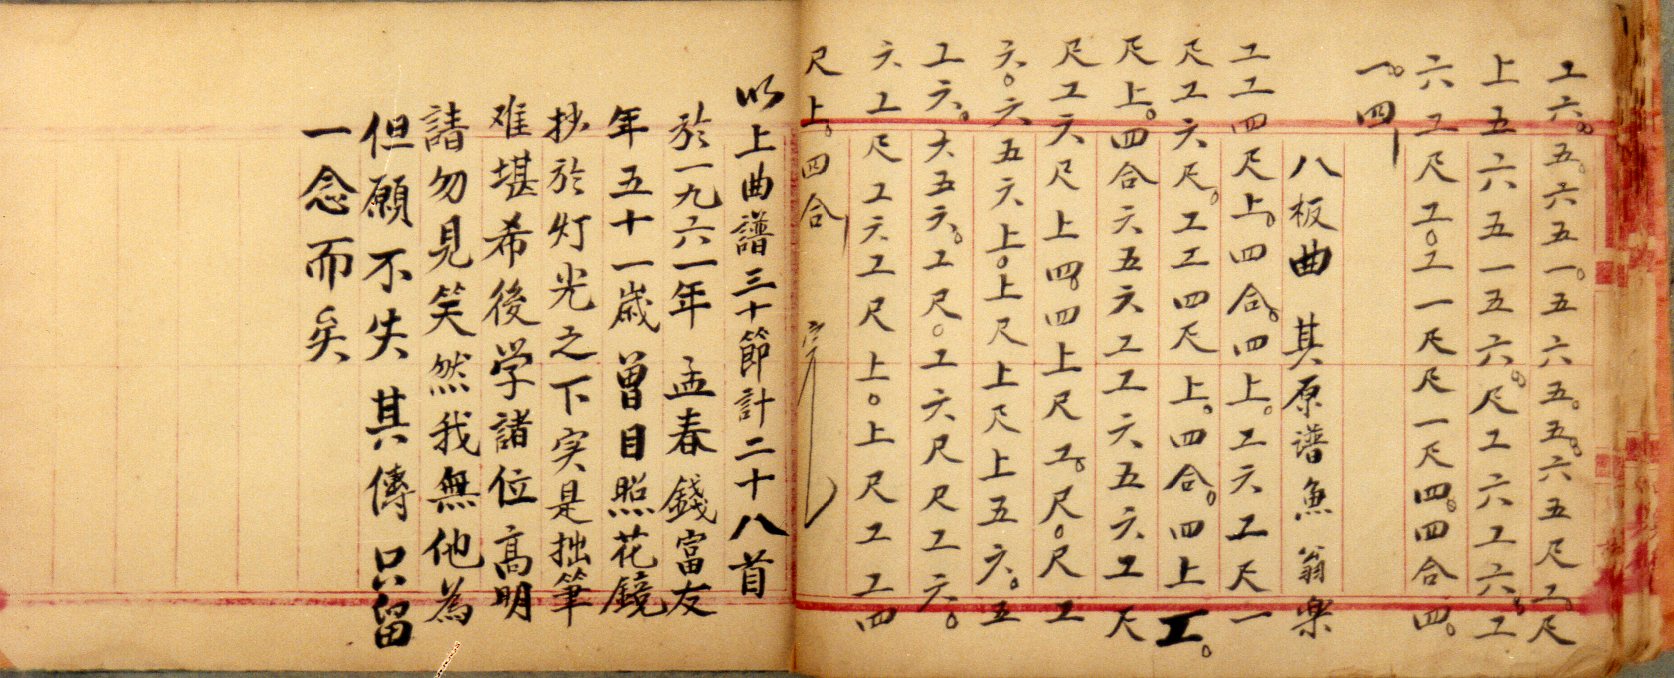 工六。五。六五一。五六五。五。六五尺工。尺
上五六五一五六。尺工六工六。工
六工尺工。工一尺尺一尺四。四合四。
一。四
八板曲 其原谱魚翁樂
工工四尺上。四合。四上。工六工尺一
尺工六尺。工工四尺上。四合。四上工。
尺上。四合六五六工工六五六工尺
尺工六尺上四。四上尺工。尺。尺工
六。六五六上。上尺上尺上五六。五
工六。六五六。工尺。工六尺尺工六。
六工尺工六工尺上。上尺工工四
尺上。四合 完
以上曲譜三十節計二十八首
於一九六一年 孟春 錢富友
年五十一歲 曾目照花鏡
抄於灯光之下实是拙筆
难堪希後学諸位高明
請勿見笑然我無他為
但願不失其傳只留
一念而矣